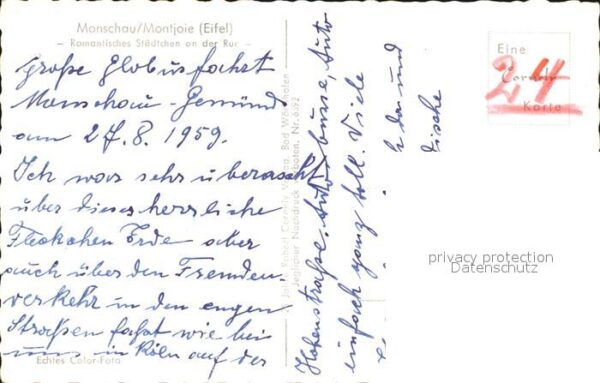 Monschau/Montjoie (Eifel)
- Romantisches Städtchen an der Rur -
große Globusfahrt
Monschau - Gemünd
am 27.8.1959.
Ich war sehr überascht
über dieses herrliche
Fleckchen Erde aber
auch über den Fremden-
verkehr in den engen
Straßen fast wie bei
uns in Köln auf der
Echtes Color-Foto
Hohenstraße. Autobusse, Auto
einfach ganz toll. Viele
Jeglicher Nachdruck verboten. Nr. 652
Eine
Karte
24
privacy protection
Datenschutz